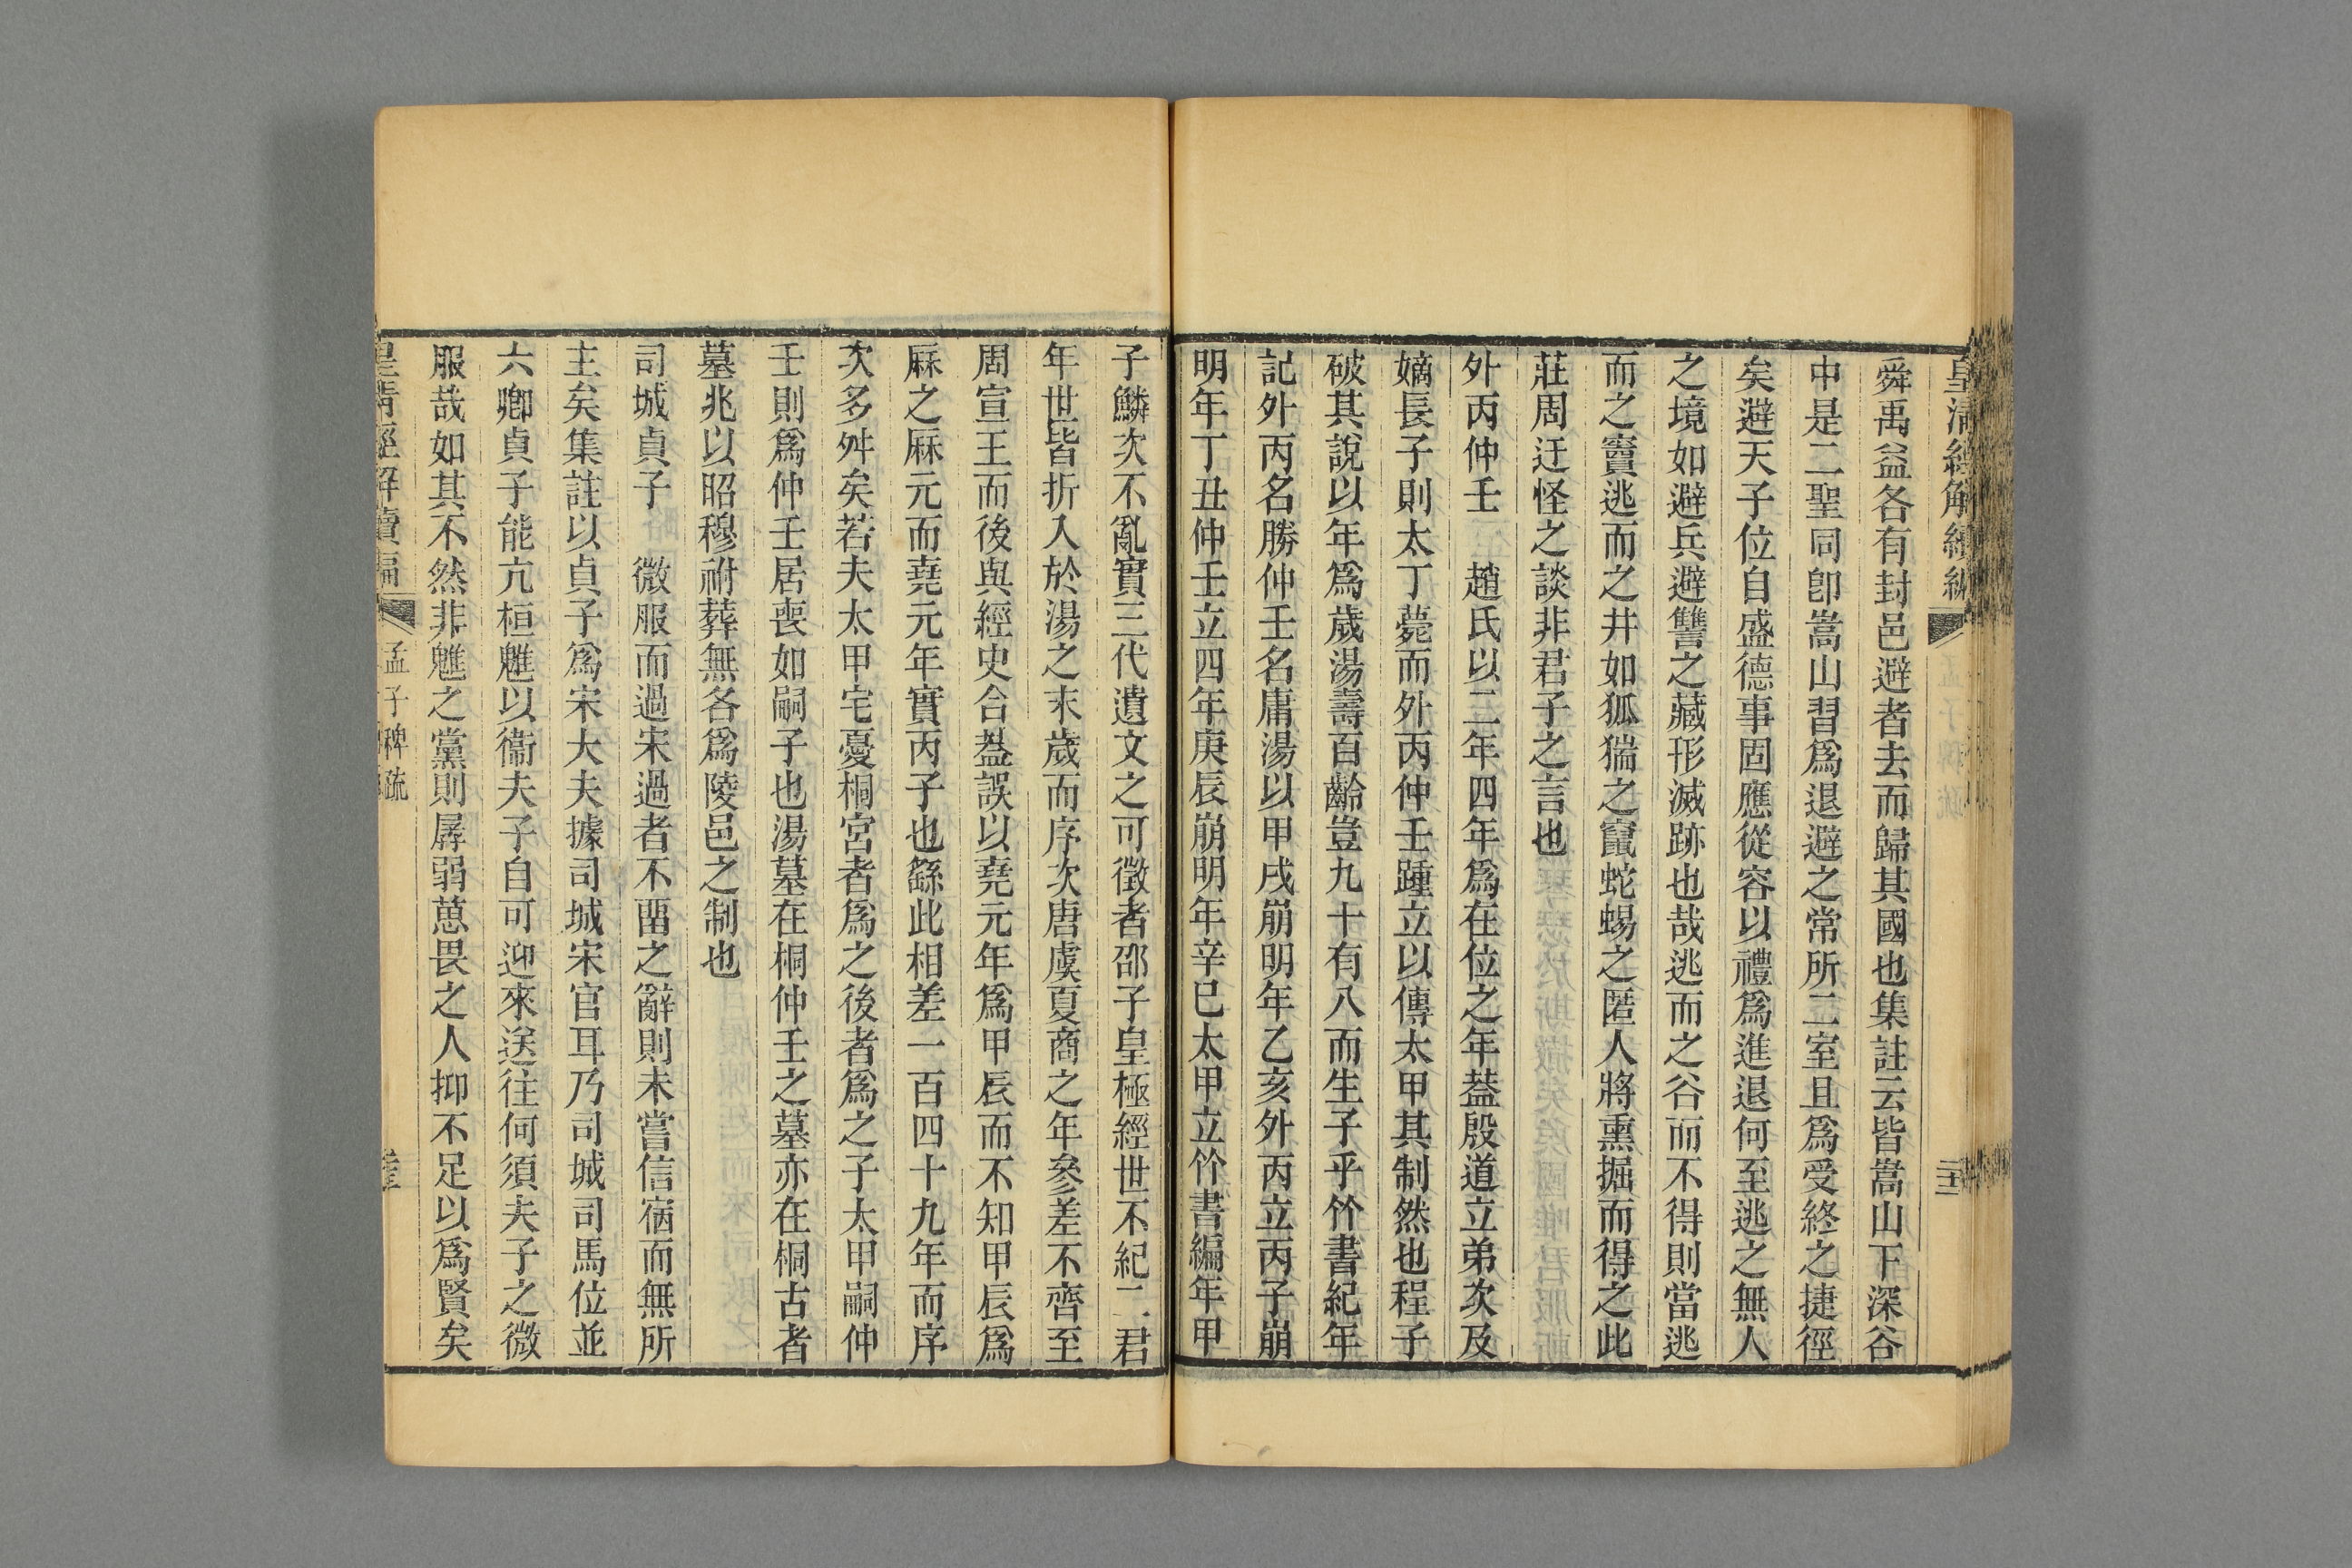 皇清經解續編
舜禹益各有封邑避者去而歸其國也集註云皆嵩山下深谷
中是二聖同卽嵩山習爲退避之常所二室且爲受終之捷徑
矣避天子位自盛德事固應從容以禮爲進退何至逃之無人
之境如避兵避讐之藏形滅跡也哉逃而之谷而不得則當逃
而之竇逃而之井如狐猯之竄蛇蜴之匿人將熏掘而得之此
莊周迂怪之談非君子之言也
外丙仲壬　趙氏以二年四年爲在位之年葢殷道立弟次及
嫡長子則太丁薨而外丙仲壬踵立以傳太甲其制然也程子
破其說以年爲歲湯壽百齡豈九十有八而生子乎竹書紀年
記外丙名勝仲壬名庸湯以甲戌崩明年乙亥外丙立丙子崩
明年丁丑仲壬立四年庚辰崩明年辛巳太甲立竹書編年甲
子鱗次不亂實三代遺文之可徵者邵子皇極經世不紀二君
年世皆折入於湯之末歲而序次唐虞夏商之年參差不齊至
周宣王而後與經史合葢誤以堯元年爲甲辰而不知甲辰爲
厤之厤元而堯元年實丙子也繇此相差一百四十九年而序
次多舛矣若夫太甲宅憂桐宮者爲之後者爲之子太甲嗣仲
壬則爲仲壬居喪如嗣子也湯墓在桐仲壬之墓亦在桐古者
墓兆以昭穆祔葬無各爲陵邑之制也
司城貞子　微服而過宋過者不畱之辭則未嘗信宿而無所
主矣集註以貞子爲宋大夫據司城宋官耳乃司城司馬位並
六卿貞子能亢桓魋以衞夫子自可迎來送往何須夫子之微
服哉如其不然非魋之黨則孱弱葸畏之人抑不足以爲賢矣
皇清經解續編　孟子稗疏